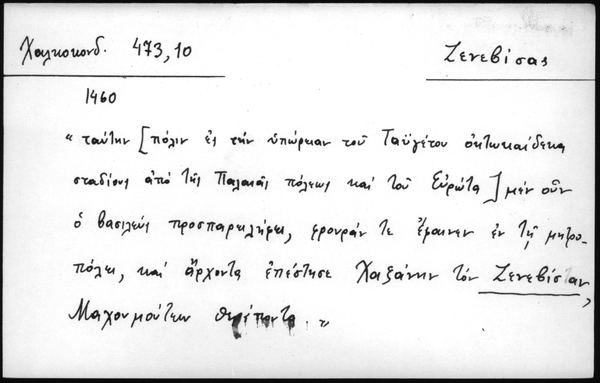 Χαλκοκονδ. 473,10
Ζενεβίσας
1460
" ταύτην [πόλιν ἐς τὴν ὑπώρειαν τοῦ Ταϋγέτου ὀκτωκαίδεκα
σταδίους ἀπὸ τῆς Παλαιᾶς πόλεως καὶ τοῦ Εὐρώτα] μὲν οὖν
ὁ βασιλεὺς προσπαρελήφει, φρουράν τε ἔφαινεν ἐν τῇ μητρο-
πόλει, καὶ ἄρχοντα ἐπέστησε Χαζάνην τὸν Ζενεβίσταν,
Μαχουμούτεω θεράποντα "